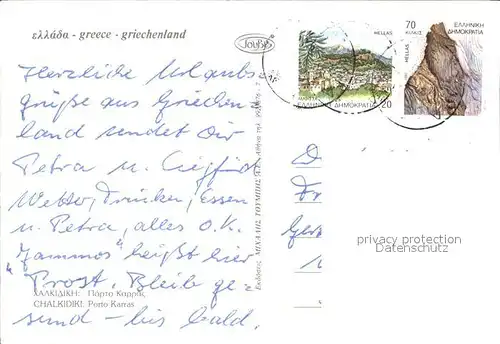 ελλάδα - greece - griechenland
Herzliche Urlaubs
grüße aus Griechen-
land sendet Dir
Petra u. Siegfried
Wetter, Trinken, Essen
u. Petra, alles o.k.
"Jammos" heißt hier
Prost. Bleib ge-
sund - bis bald.
ΧΑΛΚΙΔΙΚΗ: Πόρτο Καρράς
CHALKIDIKI: Porto Karras
Εκδόσεις ΜΙΧΑΛΗΣ ΤΟΥΜΠΗΣ Α.Ε. Αθήνα
HELLAS
ΕΛΛΗΝΙΚΗ ΔΗΜΟΚΡΑΤΙΑ 20
70
HELLAS
ΕΛΛΗΝΙΚΗ
ΔΗΜΟΚΡΑΤΙΑ
privacy protection
Datenschutz